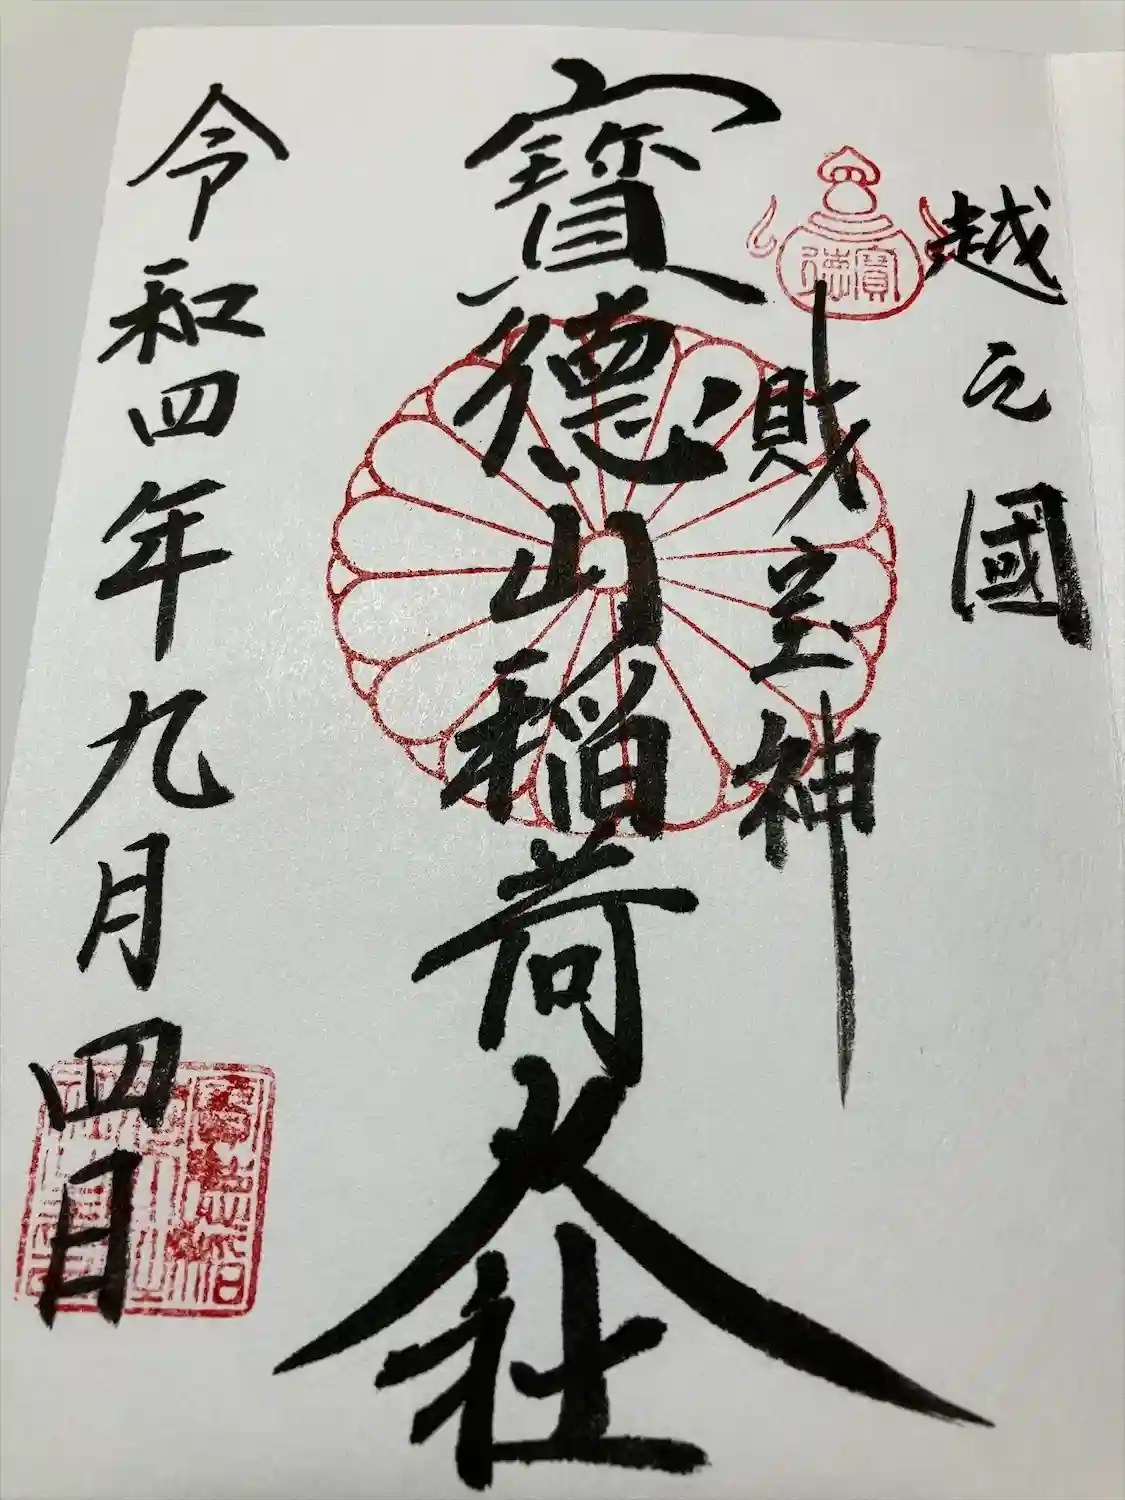 越之國
寳德
財宝神
寳德山稲荷大社
令和四年九月四日